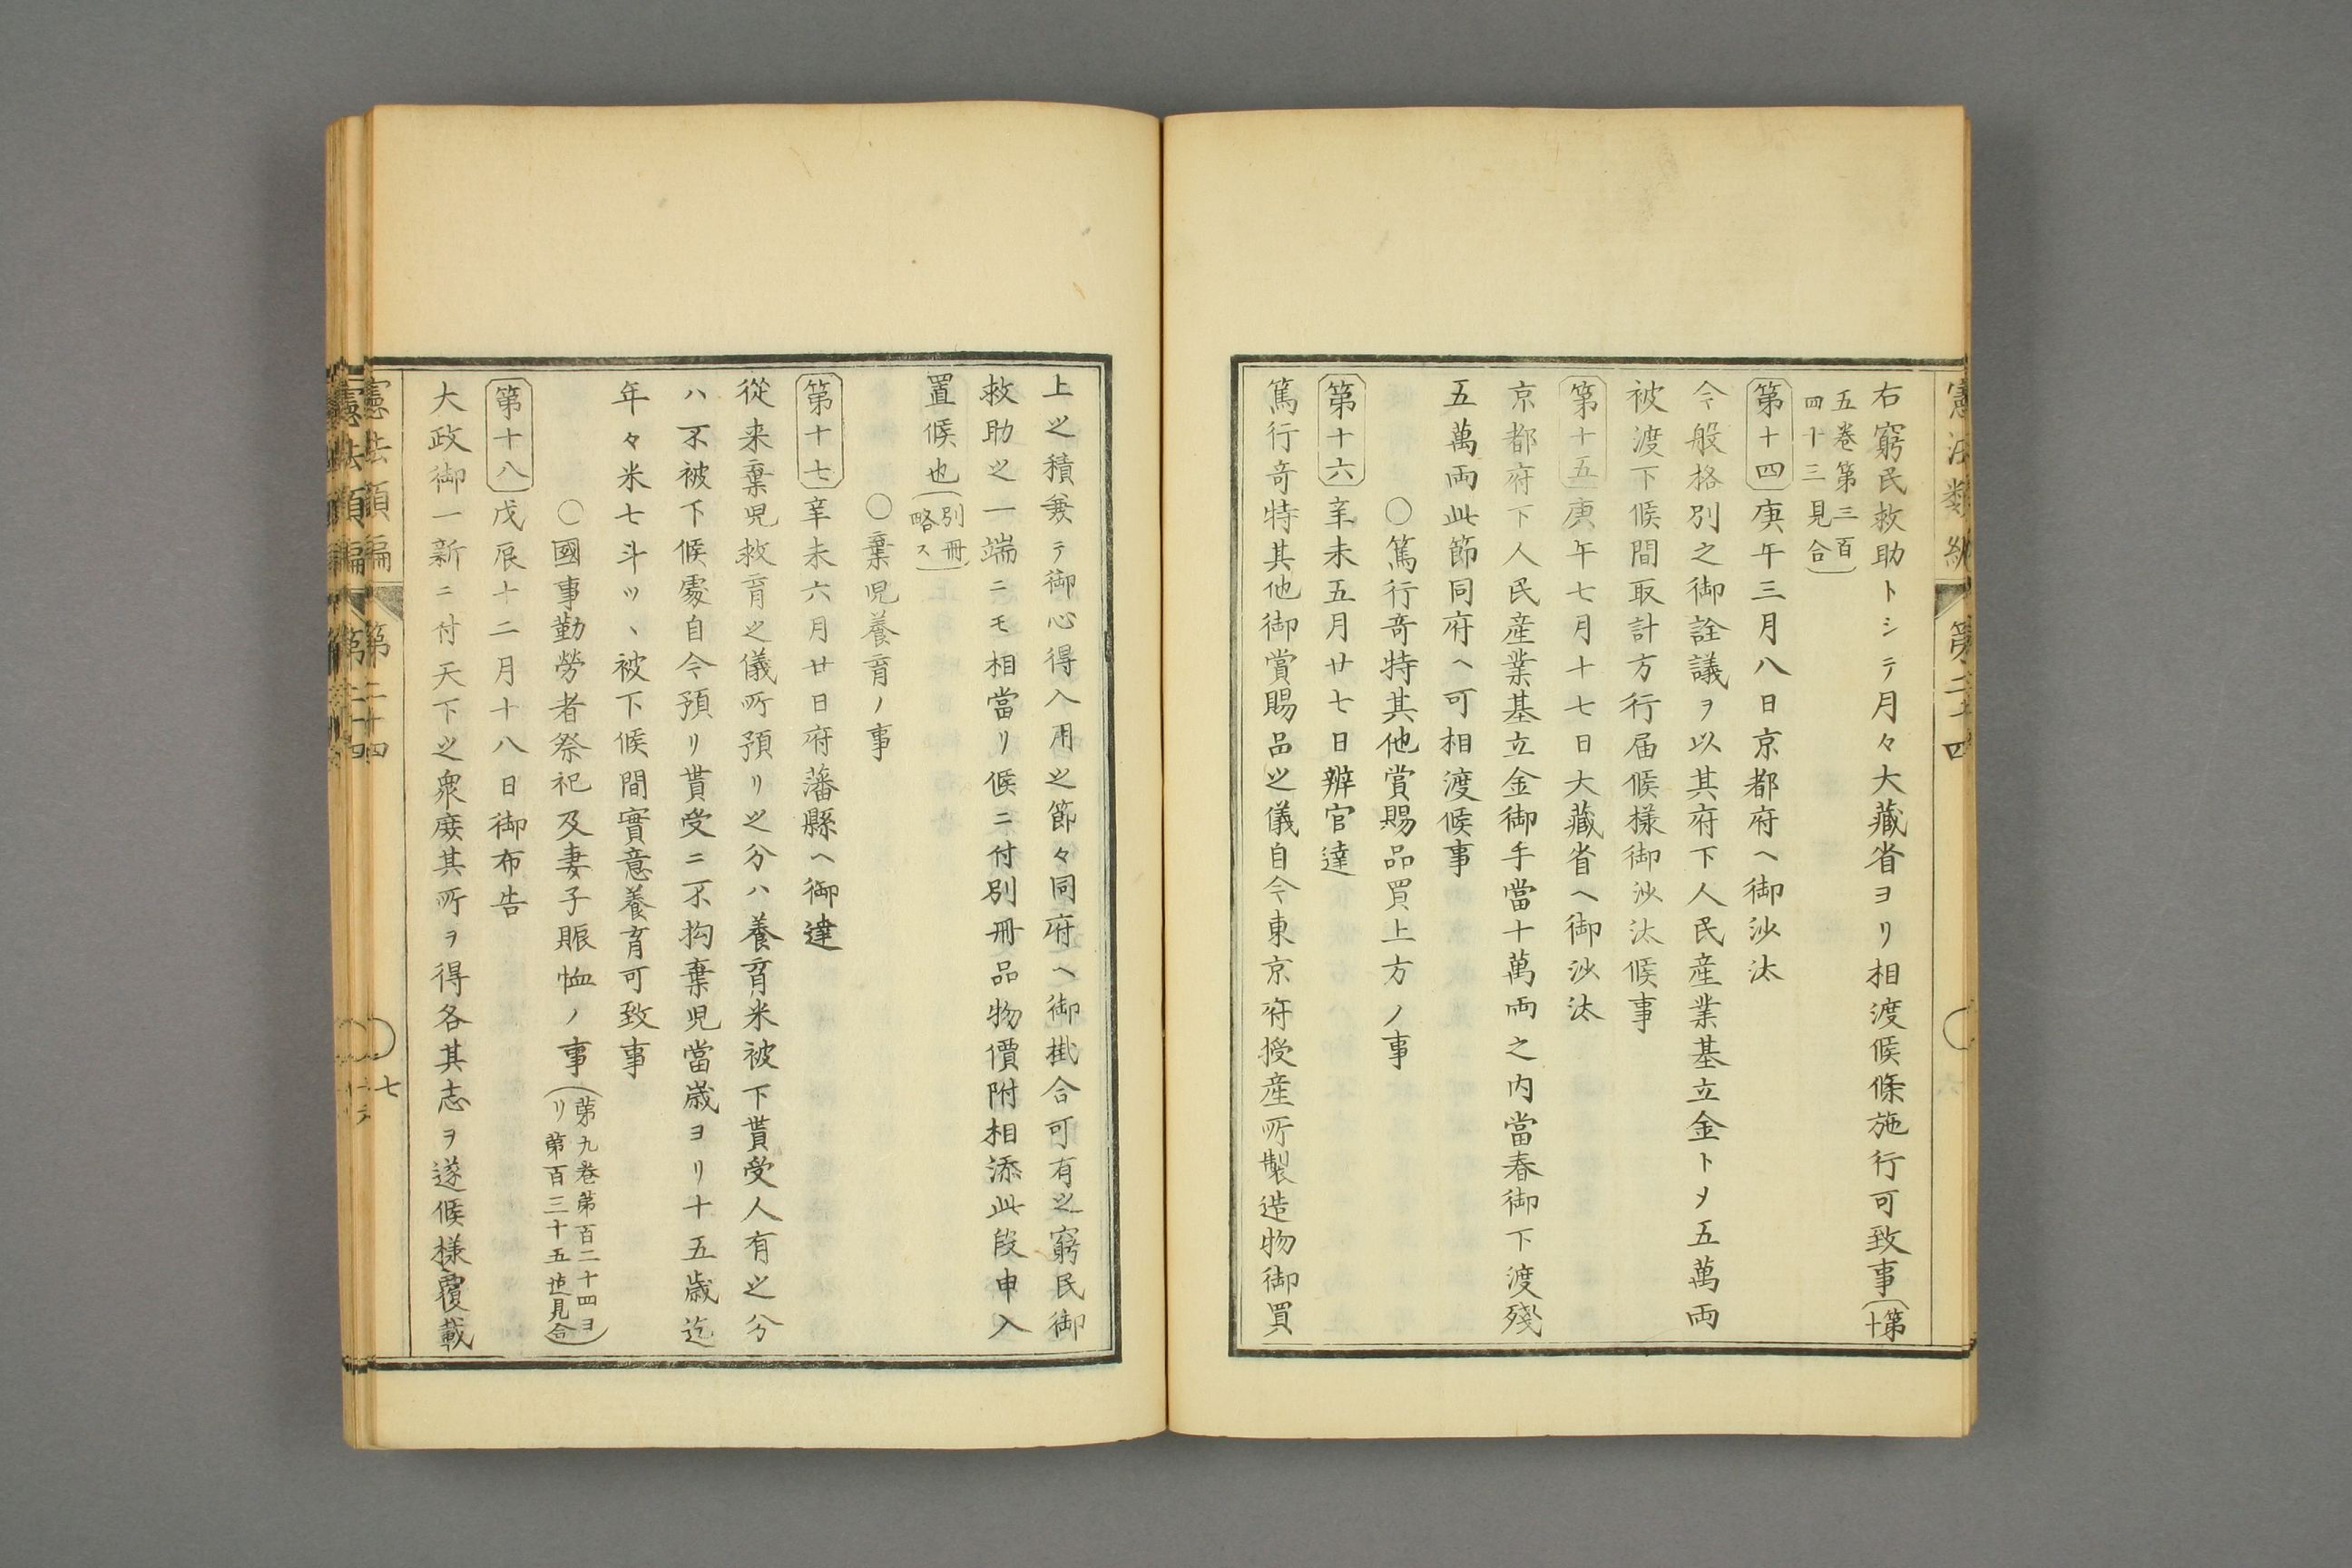 右窮民救助トシテ月々大藏省ヨリ相渡候條施行可致事(第十
五卷第三百
四十三見合)
第十四 庚午三月八日京都府ヘ御沙汰
今般格別之御詮議ヲ以其府下人民産業基立金トメ五萬両
被渡下候間取計方行届候樣御沙汰候事
第十五 庚午七月十七日大藏省ヘ御沙汰
京都府下人民産業基立金御手當十萬両之内當春御下渡殘
五萬両此節同府ヘ可相渡候事
〇篤行奇特其他賞賜品買上方ノ事
第十六 辛未五月廿七日辨官達
篤行奇特其他御賞賜品之儀自今東京府授産所製造物御買
上之積兼テ御心得入用之節々同府ヘ御掛合可有之窮民御
救助之一端ニモ相當リ候ニ付別冊品物價附相添此段申入
置候也(別冊
略ス)
〇棄児養育ノ事
第十七 辛未六月廿日府藩縣ヘ御達
從来棄児救育之儀所預リ之分ハ養育米被下貰受人有之分
ハ不被下候處自今預リ貰受ニ不拘棄児當歳ヨリ十五歳迄
年々米七斗ツヽ被下候間實意養育可致事
〇國事勤勞者祭祀及妻子賑恤ノ事(第九卷第百二十四ヨ
リ第百三十五迠見合)
第十八 戊辰十二月十八日御布告
大政御一新ニ付天下之衆庶其所ヲ得各其志ヲ遂候樣覆載
憲法類編
第二十四
七